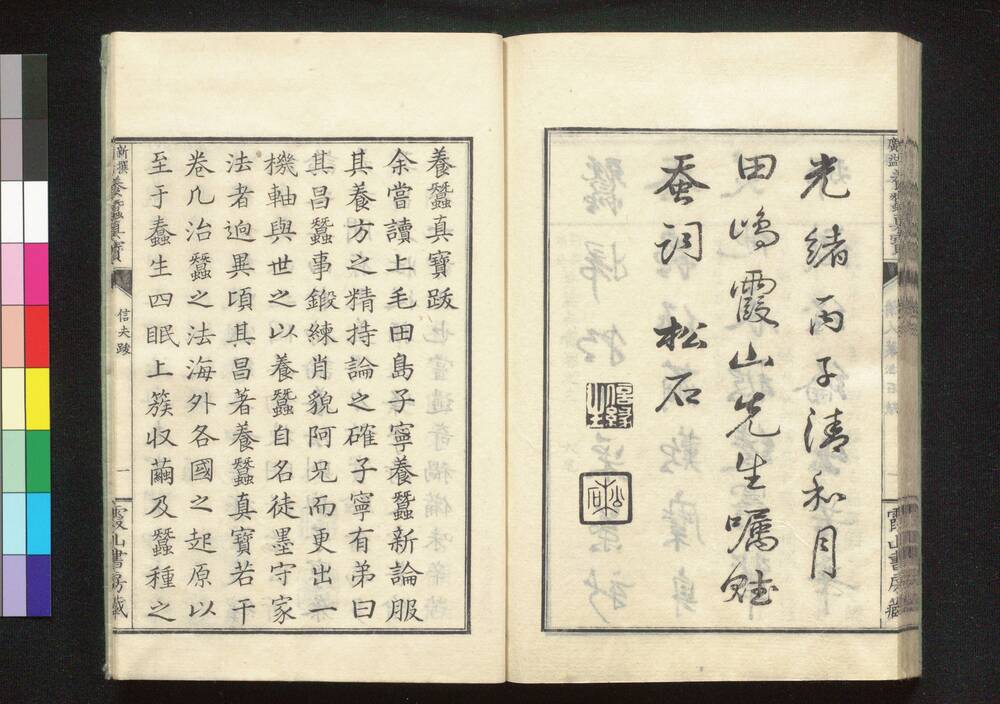 光緒丙子清和月
田嶋霞山先生囑賦
蚕詞 松石
廣益養蠶真寶
霞山書房藏
養蠶真寶跋
余嘗讀上毛田島子寧養蠶新論服
其養方之精持論之確子寧有弟曰
其昌蠶事鍛練肖貌阿兄而更出一
機軸與世之以養蠶自名徒墨守家
法者逈異頃其昌著養蠶真寶若干
卷凡治蠶之法海外各國之起原以
至于蠢生四眠上簇収繭及蠶種之
新撰養蠶真寶
信夫跋
一
霞山書房藏